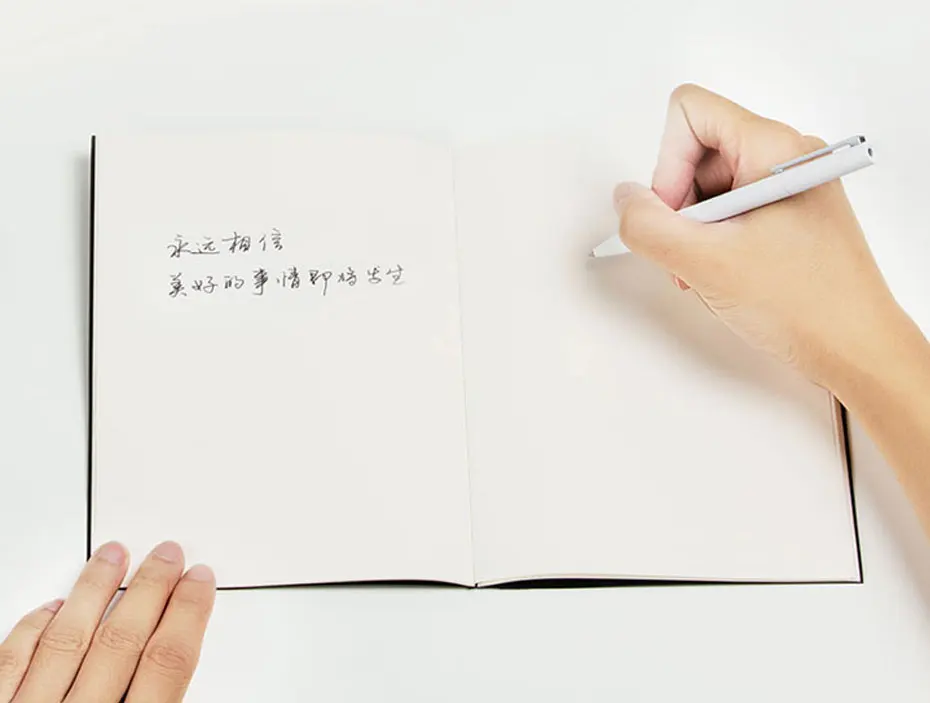 永远相信
美好的事情即将发生